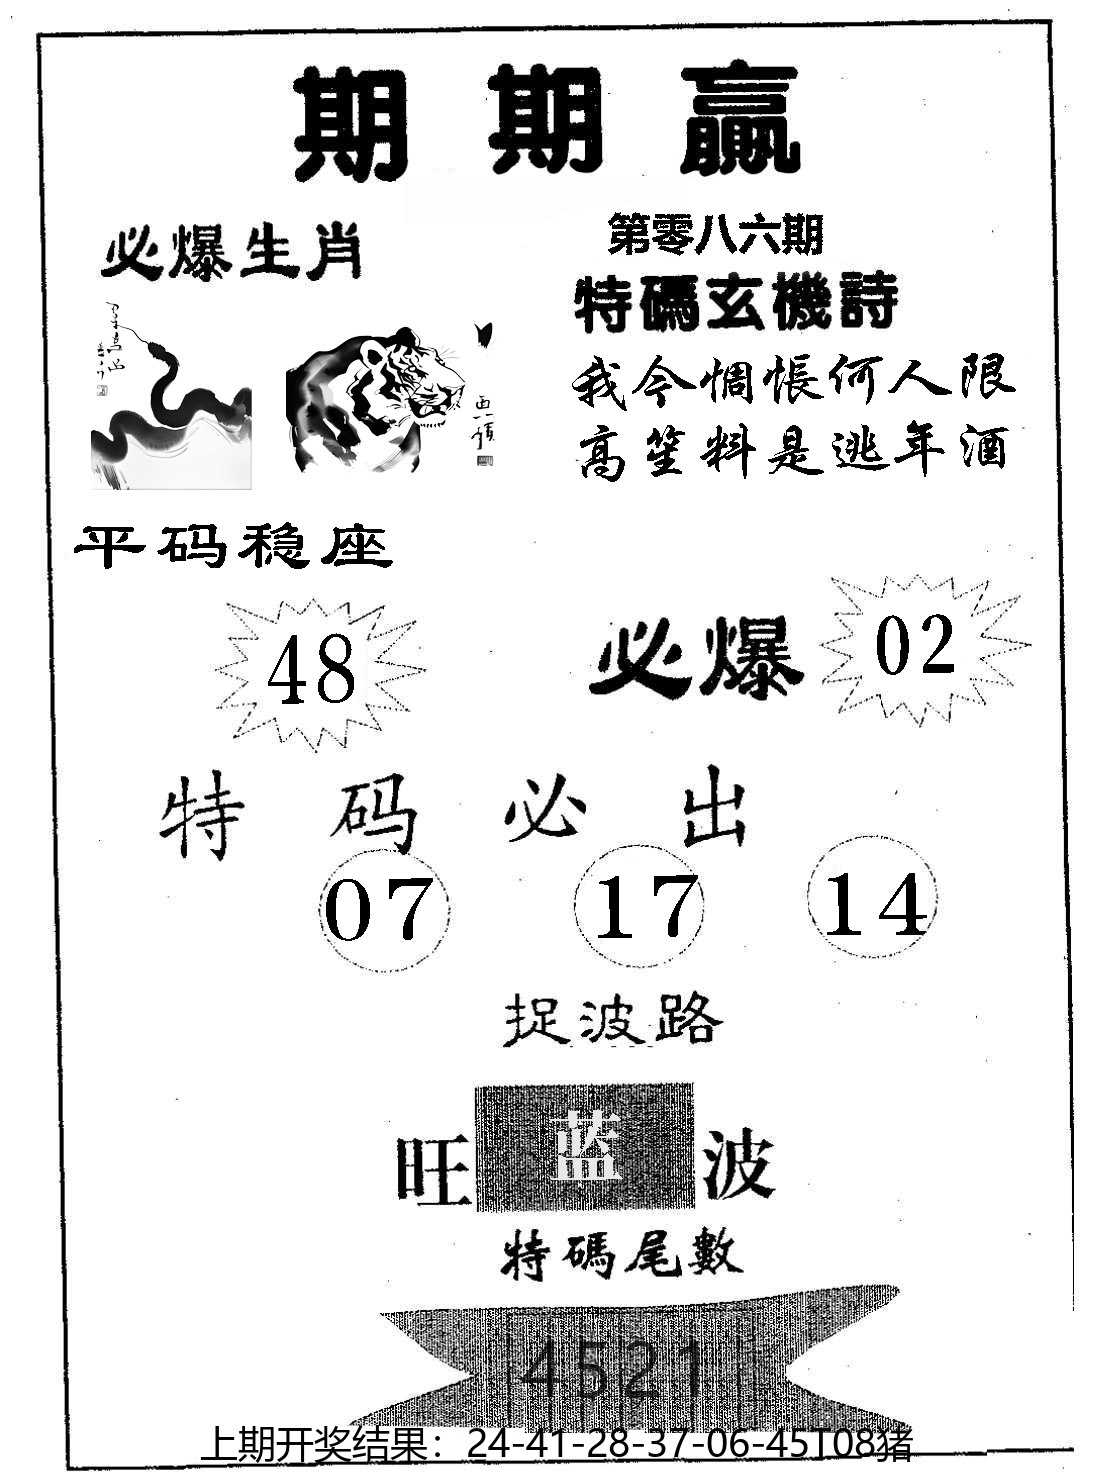 期期贏
必爆生肖
第零八六期
特碼玄機詩
我今惆悵何人限
高笙料是逃年酒
平码稳座
48
必爆 02
特码必出
07 17 14
捉波路
旺蓝波
特碼尾數
4521
上期开奖结果：24-41-28-37-06-45T08猪